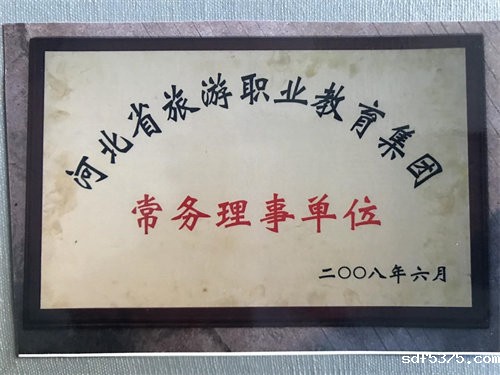 河北省旅游职业教育集团
常务理事单位
二〇〇八年六月
www.sdf5375.com